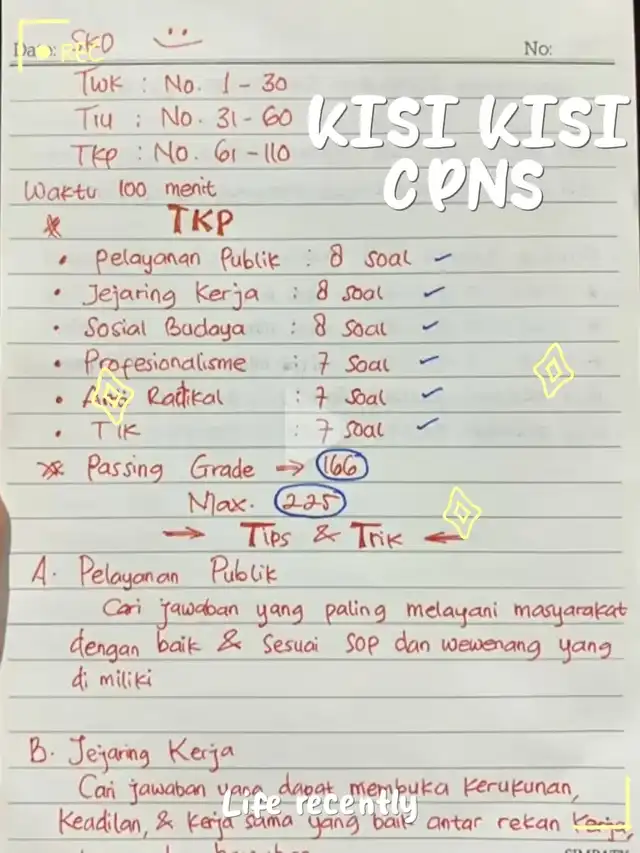 Date:
REC
SKD
No:
TWK : No. 1 - 30
TIU : No. 31 - 60
TKP : No. 61 - 110
KISI KISI
CPNS
Waktu 100 menit
TKP
• Pelayanan Publik : 8 soal ✓
• Jejaring Kerja : 8 soal ✓
• Sosial Budaya : 8 soal ✓
• Profesionalisme : 7 soal ✓
• Radikal : 7 soal ✓
• TIK : 7 soal ✓
Passing Grade → 166
Max. 225
→ Tips & Trik ←
A. Pelayanan Publik
Cari jawaban yang paling melayani masyarakat
dengan baik & sesuai SOP dan wewenang yang
di miliki
B. Jejaring Kerja
Cari jawaban yang dapat membuka kerukunan,
Life recently
Keadilan, & kerja sama yang baik antar rekan kerja,